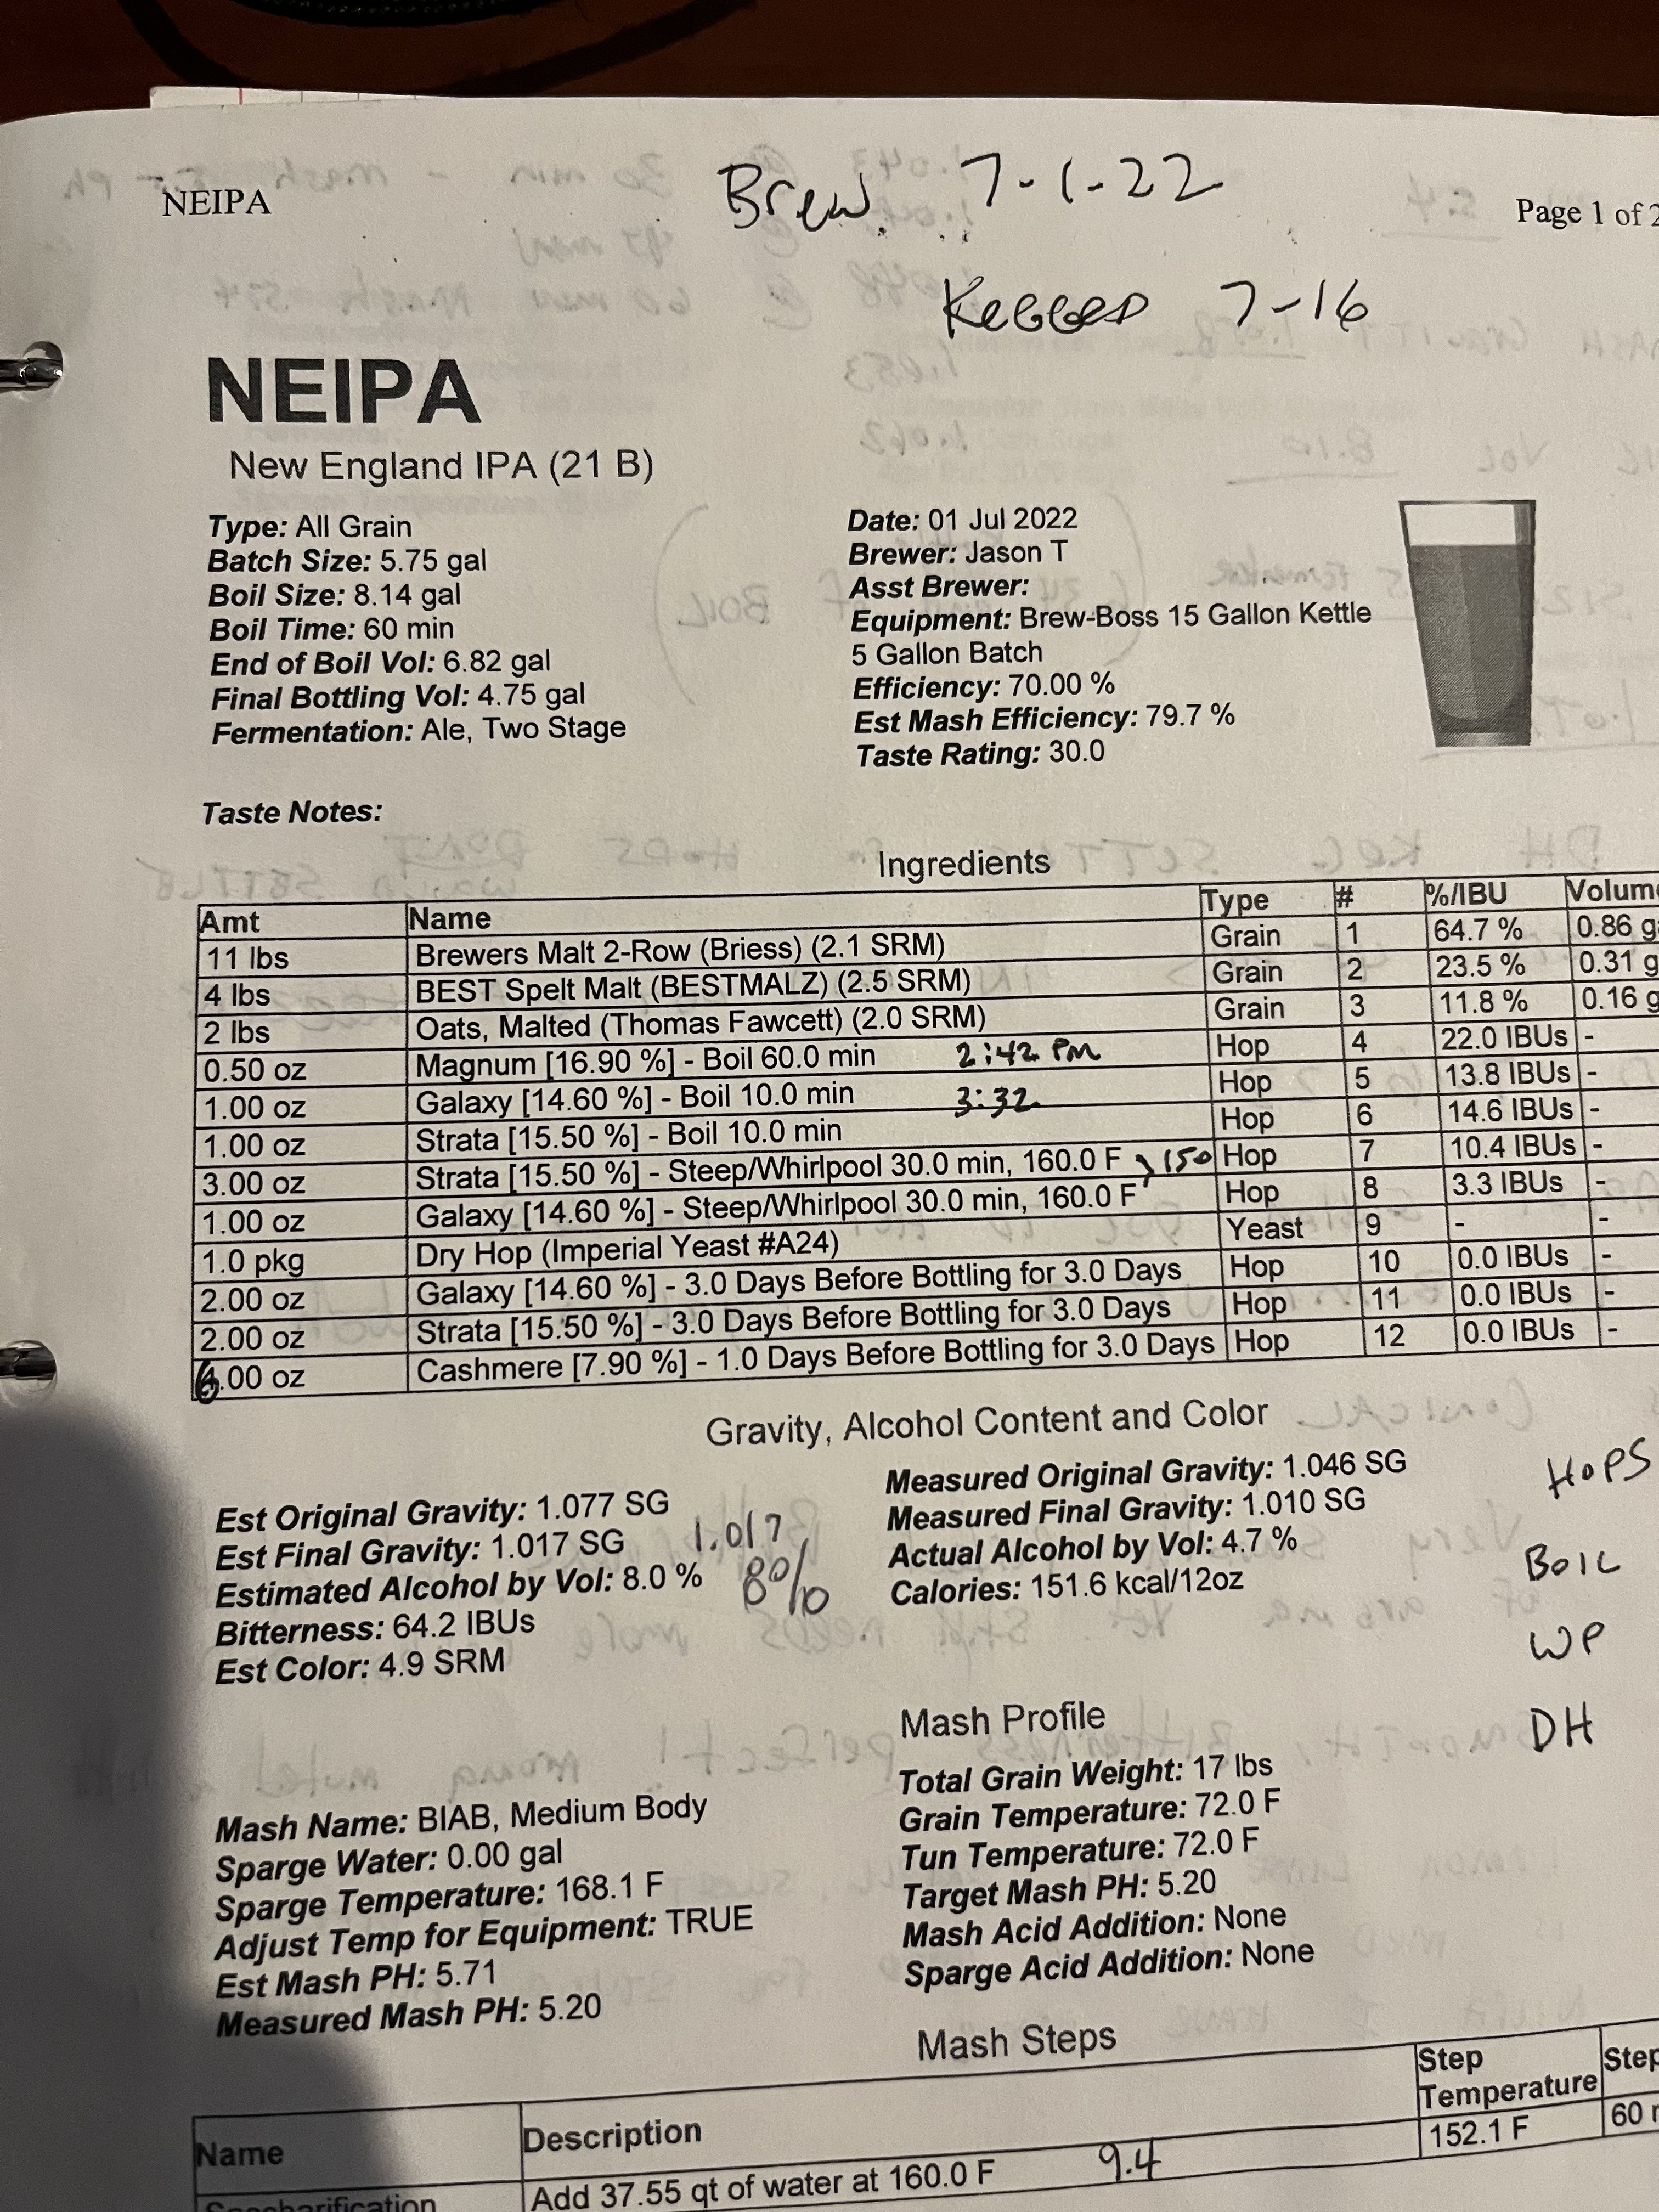 NEIPA
Brew 7-1-22
Page 1 of 2
KEGGED 7-16
NEIPA
New England IPA (21 B)
Type: All Grain
Batch Size: 5.75 gal
Boil Size: 8.14 gal
Boil Time: 60 min
End of Boil Vol: 6.82 gal
Final Bottling Vol: 4.75 gal
Fermentation: Ale, Two Stage
Date: 01 Jul 2022
Brewer: Jason T
Asst Brewer:
Equipment: Brew-Boss 15 Gallon Kettle
5 Gallon Batch
Efficiency: 70.00 %
Est Mash Efficiency: 79.7 %
Taste Rating: 30.0
Taste Notes:
Ingredients
Amt Name Type # %/IBU Volum
11 lbs Brewers Malt 2-Row (Briess) (2.1 SRM) Grain 1 64.7 % 0.86 g
4 lbs BEST Spelt Malt (BESTMALZ) (2.5 SRM) Grain 2 23.5 % 0.31 g
2 lbs Oats, Malted (Thomas Fawcett) (2.0 SRM) Grain 3 11.8 % 0.16 g
0.50 oz Magnum [16.90 %] - Boil 60.0 min 2:42 PM Hop 4 22.0 IBUs -
1.00 oz Galaxy [14.60 %] - Boil 10.0 min 3:32 Hop 5 13.8 IBUs -
1.00 oz Strata [15.50 %] - Boil 10.0 min Hop 6 14.6 IBUs -
3.00 oz Strata [15.50 %] - Steep/Whirlpool 30.0 min, 160.0 F 150 Hop 7 10.4 IBUs -
1.00 oz Galaxy [14.60 %] - Steep/Whirlpool 30.0 min, 160.0 F Hop 8 3.3 IBUs -
1.0 pkg Dry Hop (Imperial Yeast #A24) Yeast 9 - -
2.00 oz Galaxy [14.60 %] - 3.0 Days Before Bottling for 3.0 Days Hop 10 0.0 IBUs -
2.00 oz Strata [15.50 %] - 3.0 Days Before Bottling for 3.0 Days Hop 11 0.0 IBUs -
6.00 oz Cashmere [7.90 %] - 1.0 Days Before Bottling for 3.0 Days Hop 12 0.0 IBUs -
Gravity, Alcohol Content and Color
Est Original Gravity: 1.077 SG
Est Final Gravity: 1.017 SG 1.017
Estimated Alcohol by Vol: 8.0 % 8%
Bitterness: 64.2 IBUs
Est Color: 4.9 SRM
Measured Original Gravity: 1.046 SG
Measured Final Gravity: 1.010 SG
Actual Alcohol by Vol: 4.7 %
Calories: 151.6 kcal/12oz
HOPS
BOIL
WP
DH
Mash Profile
Mash Name: BIAB, Medium Body
Sparge Water: 0.00 gal
Sparge Temperature: 168.1 F
Adjust Temp for Equipment: TRUE
Est Mash PH: 5.71
Measured Mash PH: 5.20
Total Grain Weight: 17 lbs
Grain Temperature: 72.0 F
Tun Temperature: 72.0 F
Target Mash PH: 5.20
Mash Acid Addition: None
Sparge Acid Addition: None
Mash Steps
Name Description Step Temperature Step
Saccharification Add 37.55 qt of water at 160.0 F 9.4 152.1 F 60